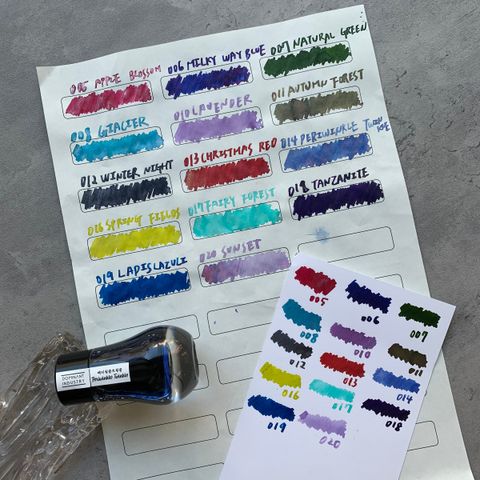 005 APPLE BLOSSOM
006 MILKY WAY BLUE
007 NATURAL GREEN
008 GLACIER
010 LAVENDER
011 AUTUMN FOREST
012 WINTER NIGHT
013 CHRISTMAS RED
014 PERIWINKLE
016 SPRING FIELDS
017 FAIRY FOREST
018 TANZANITE
019 LAPISLAZULI
020 SUNSET
DOMINANT
INDUSTRY
Periwinkle Twinkle
005
006
007
008
010
011
012
013
014
016
017
018
019
020